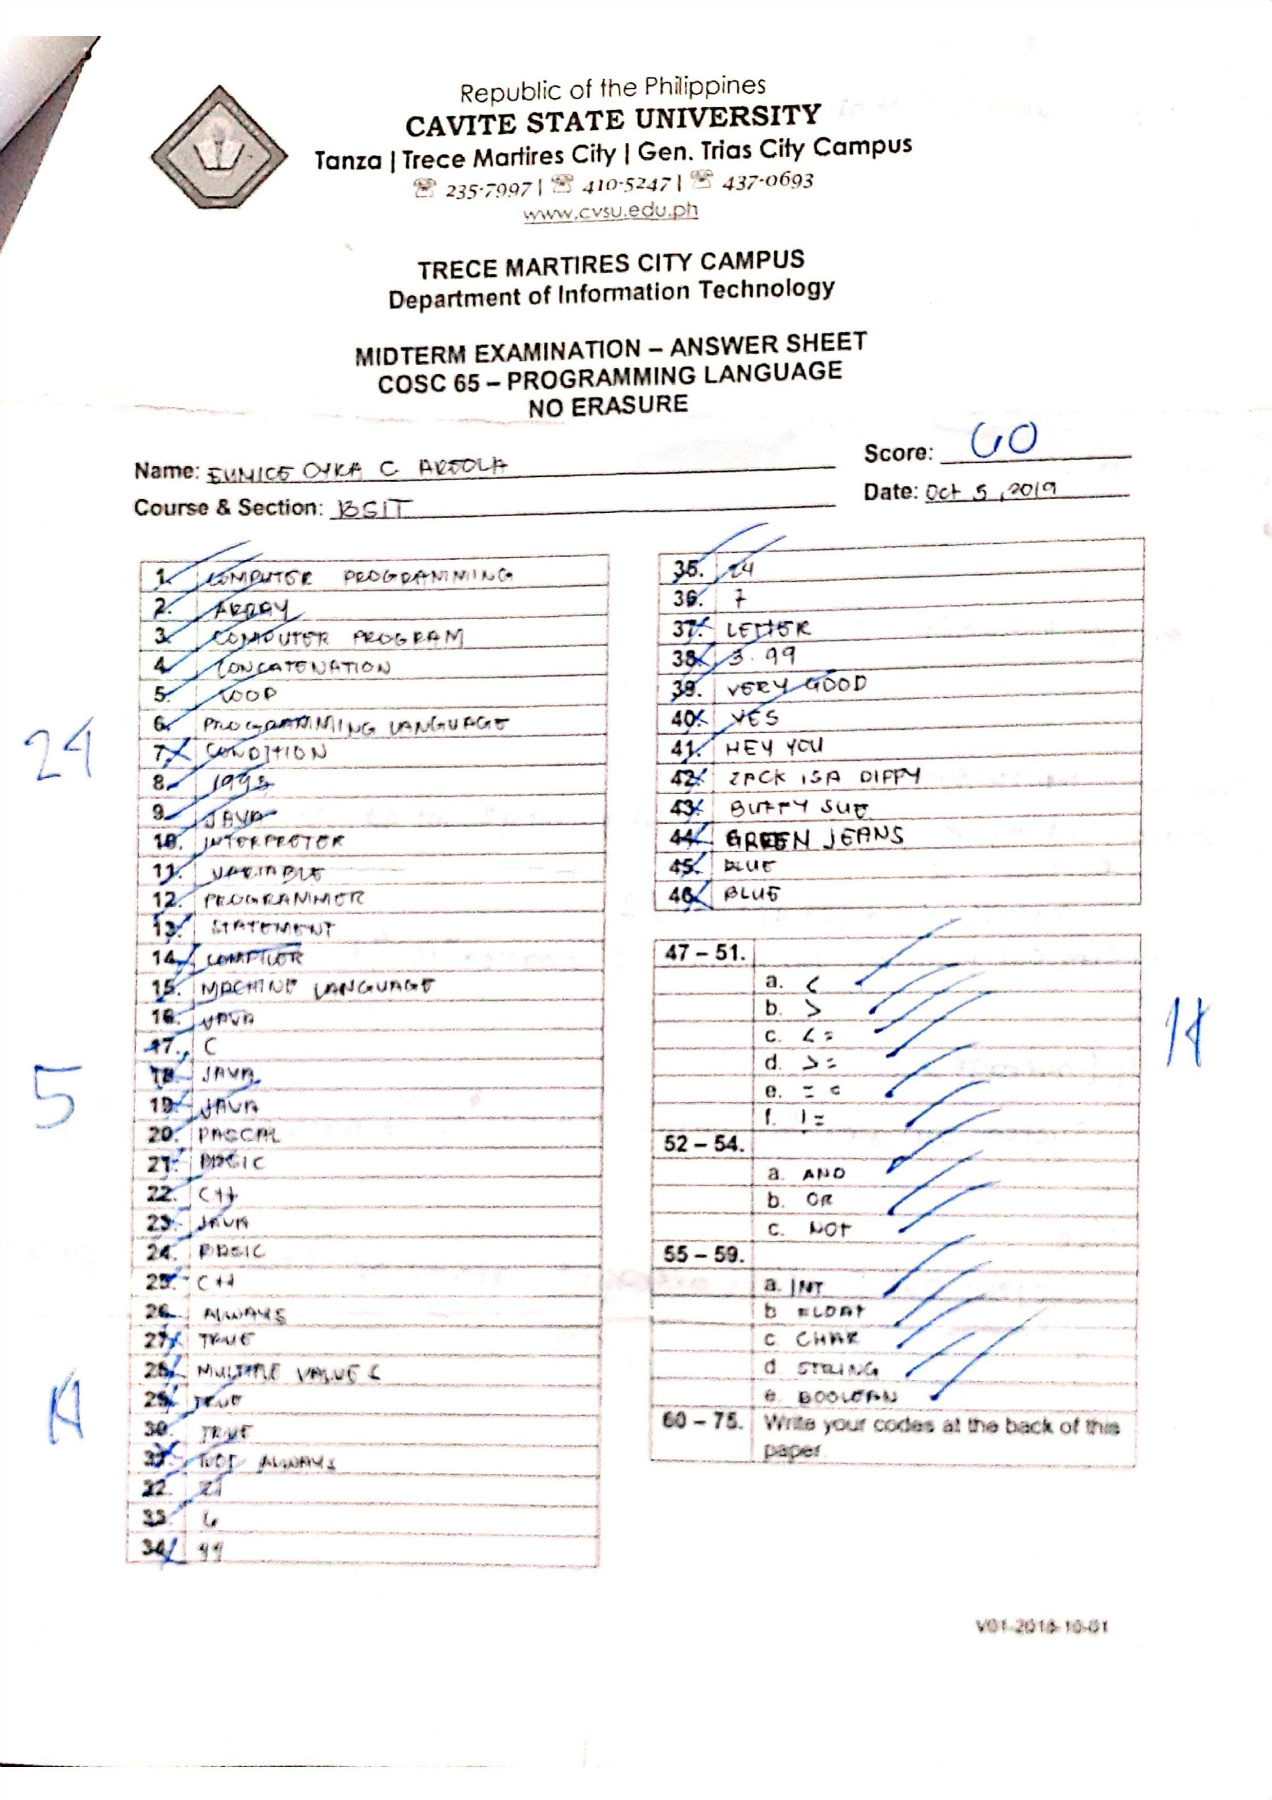 Republic of the Philippines
CAVITE STATE UNIVERSITY
Tanza | Trece Martires City | Gen. Trias City Campus
☏ 235-7997 | ☏ 410-5247 | ☏ 437-0693
www.cvsu.edu.ph
TRECE MARTIRES CITY CAMPUS
Department of Information Technology
MIDTERM EXAMINATION – ANSWER SHEET
COSC 65 – PROGRAMMING LANGUAGE
NO ERASURE
Name: EUNICE CYKA C AREOLA
Score: 60
Course & Section: BSIT
Date: Oct 5, 2019
1. COMPUTER PROGRAMMING
2. ARRAY
3. COMPUTER PROGRAM
4. CONCATENATION
5. LOOP
6. PROGRAMMING LANGUAGE
7. CONDITION
8. 1995
9. JAVA
10. INTERPRETER
11. VARIABLE
12. PROGRAMMER
13. STATEMENT
14. COMPILER
15. MACHINE LANGUAGE
16. JAVA
17. C
18. JAVA
19. JAVA
20. PASCAL
21. BASIC
22. C++
23. JAVA
24. BASIC
25. C++
26. ALWAYS
27. TRUE
28. MULTIPLE VALUES
29. TRUE
30. TRUE
31. NOT ALWAYS
32. 21
33. 6
34. 99
24
5
35. 24
36. 7
37. LETTER
38. 3.99
39. VERY GOOD
40. YES
41. HEY YOU
42. ZACK ISA DIPPY
43. BUFFY SUE
44. GREEN JEANS
45. BLUE
46. BLUE
47 – 51.
a. <
b. >
c. < =
d. > =
e. = =
f. ! =
52 – 54.
a. AND
b. OR
c. NOT
55 – 59.
a. INT
b FLOAT
c CHAR
d STRING
e. BOOLEAN
60 – 75. Write your codes at the back of this
paper.
V01-2018-10-01